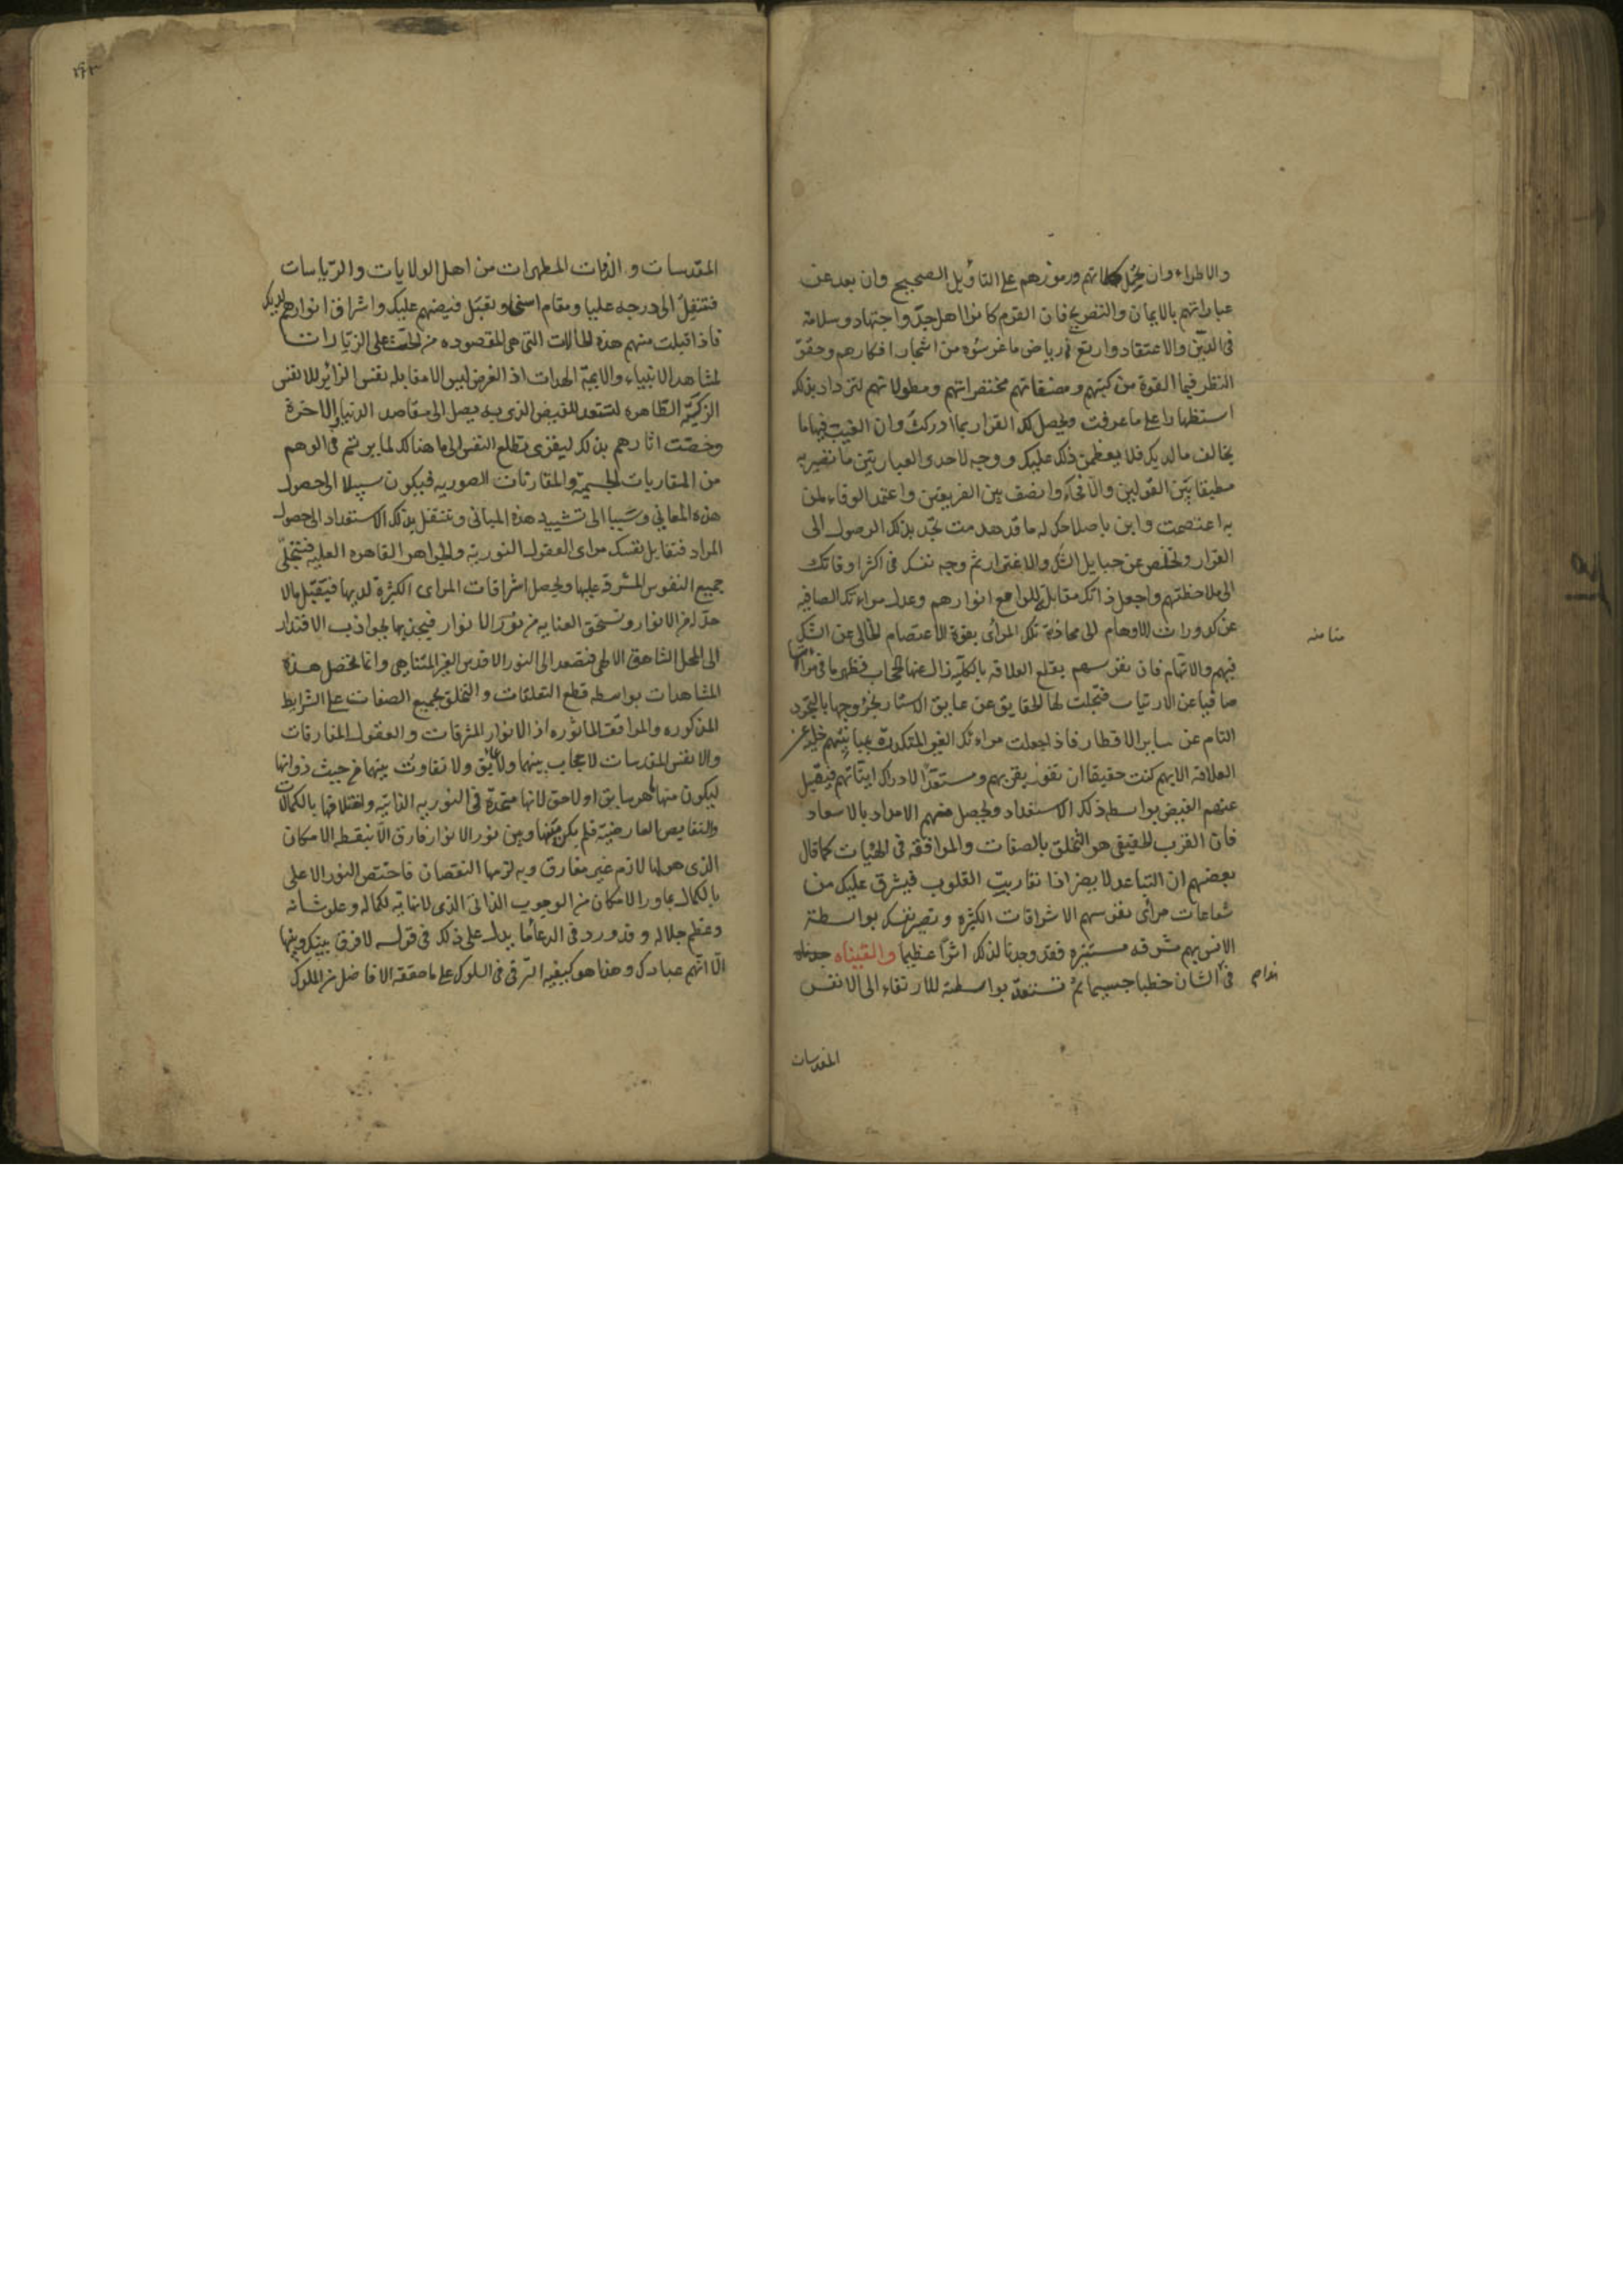 والاطراء وان تحمل كلماتهم ورموزهم على التاويل الصحيح وان بعد عن
عباراتهم بالايمان والتصريح فان القوم كانوا اهل جدّ واجتهاد وسلامة
فى الدين والاعتقاد وارتع فى رياض ما غرسوه من اشجار افكارهم وحقق
النظر فيما القوه من كتبهم ومصنفاتهم مختصراتهم ومطولاتهم لتزداد بذلك
استظهارا على ما عرفت ويحصل لك القرار بما ادركت وان الفيت فيها ما
يخالف ما لديك فلا يعظمن ذلك عليك ووجه لاحدى العبارتين ما تصير به
مطبقا بين القولين والانحاء وانصف بين الفريقين واعتمد الوفاء لمن
به اعتصمت وابن باصلاحك له ما قد هدمت تجد بذلك الوصول الى
القرار وتخلص عن حبايل الشك والاغترار ثم وجه نفسك فى اكثر اوقاتك
الى ملاحظتهم واجعل ذاتك مقابلة للوامع انوارهم وعدل مراءتك الصافيه
عن كدورات الاوهام الى محاذية تلك المرائى بقوة الاعتصام الخالى عن الشك
منا منه
فيهم والاتهام فان نفوسهم بقلع العلاقه بالكلية زال عنها الحجاب فظهر ما فى مراتها
صافيا عن الارتياب فتجلت لها الحقايق عن عايق الاستتار بخروجها بالتجرد
التام عن ساير الاقطار فاذا جعلت مراءتك الغير المتكدرة بمباينتهم خلية عن
العلاقة الا بهم كنت حقيقا ان تفوز بقربهم ومستعدا لادراك ايتاتهم فيقبل
عنهم الفيض بواسطه ذلك الاستعداد ويحصل منهم الامداد بالاسعاد
فان القرب الحقيقى هو التخلق بالصفات والموافقه فى الهيات كما قال
بعضهم ان التباعد لا يضر اذا تقاربت القلوب فيشرق عليك من
شعاعات مرائى نفوسهم الاشراقات الكثيره وتصير نفسك بواسطة
الانس بهم مشرقه مستنيره فقد وجدنا لذلك اثرا عظيما والقيناه
فى الشان خطبا جسيما ثم تستعد بواسطته للارتقاء الى الانفس
المقدسات
المقدسات والذوات المطهرات من اهل الولايات والرياسات
فتنتقل الى درجه عليا ومقام اسنى وتقبل فيضهم عليك واشراق انوارهم لديك
فاذا قبلت منهم هذه الحالات التى هى المقصوده من الحث على الزيارات
لمشاهد الانبياء والايمة الهدات اذ الغرض ليس الا مقابلة نفس الزائر للانفس
الزكية الطاهره لتستعد للفيض الذى به يصل الى مقاصد الدنيا والاخرة
وخصت اثارهم بذلك ليقوى تطلع النفس الى ما هنالك لما يرتسم فى الوهم
من المقاربات الجسمية والمقارنات الصوريه فيكون سبيلا الى حصول
هذه المعانى وسببا الى تشييد هذه المبانى وتنتقل بذلك الاستعداد الى حصول
المراد فتقابل نفسك مراى العقول النورية والجواهر القاهره العليه فتتجلى
جميع النفوس المشرقة عليها ويحصل اشراقات المراى الكثيرة لديها فيتقبل مالا
حد له من الانوار وتستحق العنايه من نور الانوار فيجذبها بجواذب الاقتدار
الى المحل الشاهق الالهى فتصعد الى النور الاقدس الغير المتناهى وانما تحصل هذه
المشاهدات بواسطه قطع التعلقات والتخلق بجميع الصفات على الشرايط
المذكوره والموافقة الماثوره اذ الانوار المشرقات والعقول المفارقات
والانفس المقدسات لا حجاب بينها ولا عائق ولا تفاوت بينها من حيث ذواتها
ليكون منها ما هو سابق او لاحق لانها متحدة فى النوريه الذاتيه واختلافها بالكمالات
والنقايص العارضية فلم يكن بينها وبين نور الانوار فارق الا بنقطه الامكان
الذى هو لها لازم غير مفارق وبه لزمها النقصان فاختص النور الاعلى
بالكمال بما وراء الامكان من الوجوب الذاتى الذى لا نهاية لكماله وعلو شانه
وعظم جلاله وقد ورد فى الدعاء ما يدل على ذلك فى قوله لا فرق بينك وبينها
الا انهم عبادك وهذا هو كيفيه الترقى فى السلوك على ما حققه الافاضل من الملوك